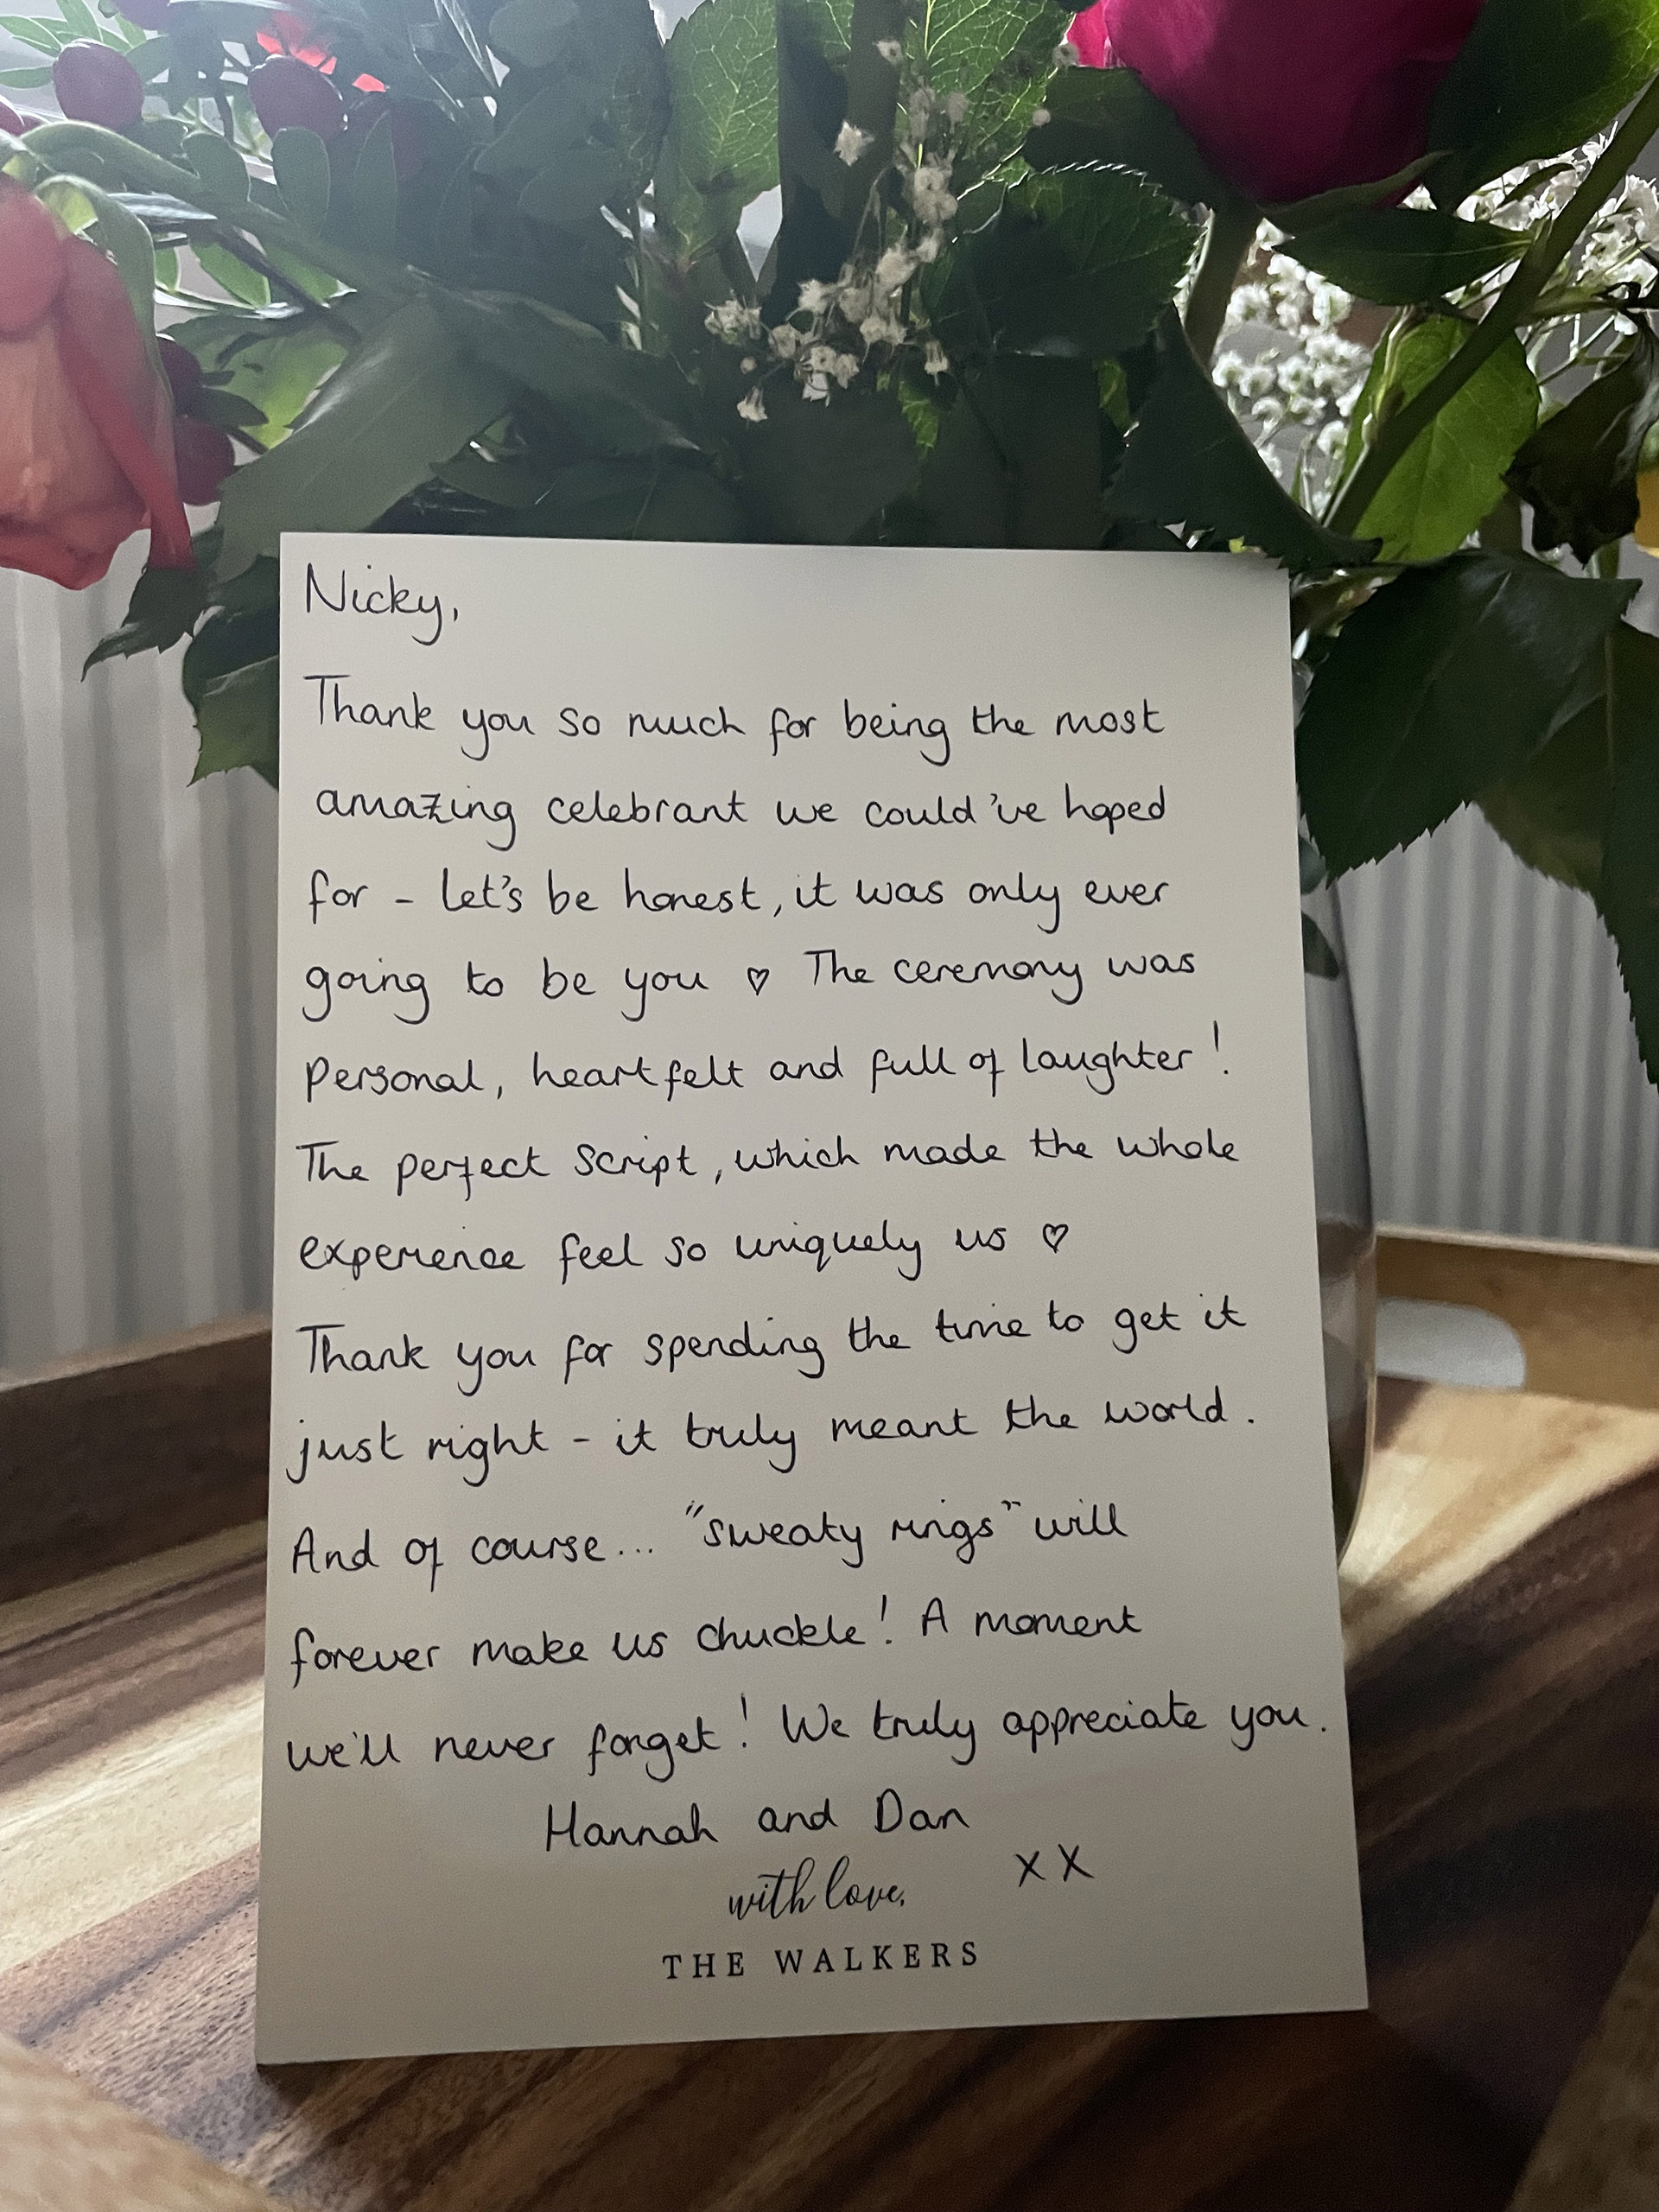 Nicky,
Thank you so much for being the most
amazing celebrant we could've hoped
for - let's be honest, it was only ever
going to be you ♡ The ceremony was
Personal, heartfelt and full of laughter!
The perfect script, which made the whole
experience feel so uniquely us ♡
Thank you for spending the time to get it
just right - it truly meant the world.
And of course... "sweaty rings" will
forever make us chuckle! A moment
we'll never forget! We truly appreciate you.
Hannah and Dan
xx
with love,
THE WALKERS